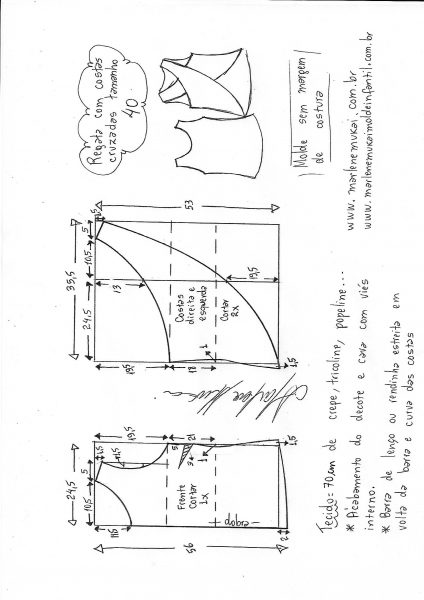 Regata com costas
cruzadas tamanho
40
Molde sem margem
de costura
www.marlenemukai.com.br
www.marlenemukaimoldeinfantil.com.br
53
1,5
5
10,5
35,5
24,5
13
19,5
Costas
direita e
esquerda
Cortar
2x
1
18
1,5
19,5
21
1,5
5
24,5
10,5
5
1
Frente
Cortar
1x
dobra
1,5
2
56
Tecido=70cm de crepe, tricoline, popeline...
* Acabamento do decote e cava com viés
interno.
* Barra de lenço ou rendinha estreita em
volta da barra e curva das costas